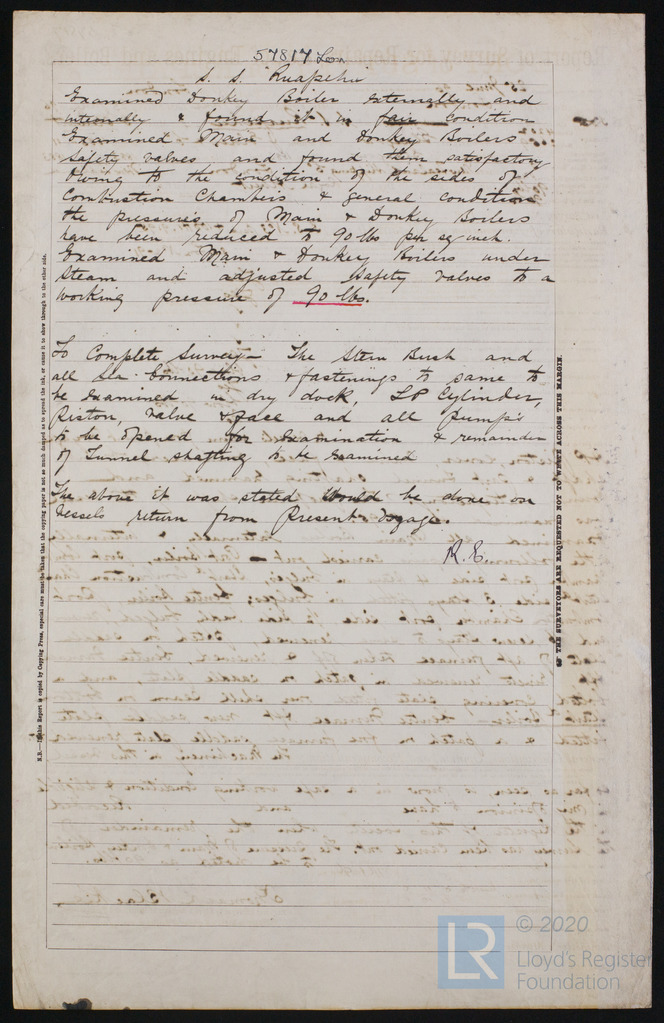 57817 Lon
S. S. Ruapehu
Examined Donkey Boiler externally and
internally & found it in fair condition
Examined Main and Donkey Boilers
safety valves and found them satisfactory
Owing to the condition of the sides of
Combustion Chambers & general condition
the pressures of Main & Donkey Boilers
have been reduced to 90 lbs per sq inch.
Examined Main & Donkey Boilers under
steam and adjusted safety valves to a
working pressure of 90 lbs.
To Complete Survey— The Stern Bush and
all Sea Connections & fastenings to same to
be examined in dry dock, LP Cylinder,
Piston, valve & face and all Pumps
to be opened for examination & remainder
of Tunnel shafting to be examined
The above it was stated would be done on
Vessels return from Present Voyage.
R. E.
N.B.—If this Report is copied by Copying Press, especial care must be taken that the copying paper is not so much damped as to spread the ink, or cause it to show through to the other side.
OF THE SURVEYORS ARE REQUESTED NOT TO WRITE ACROSS THIS MARGIN.
LR
© 2020
Lloyd's Register
Foundation